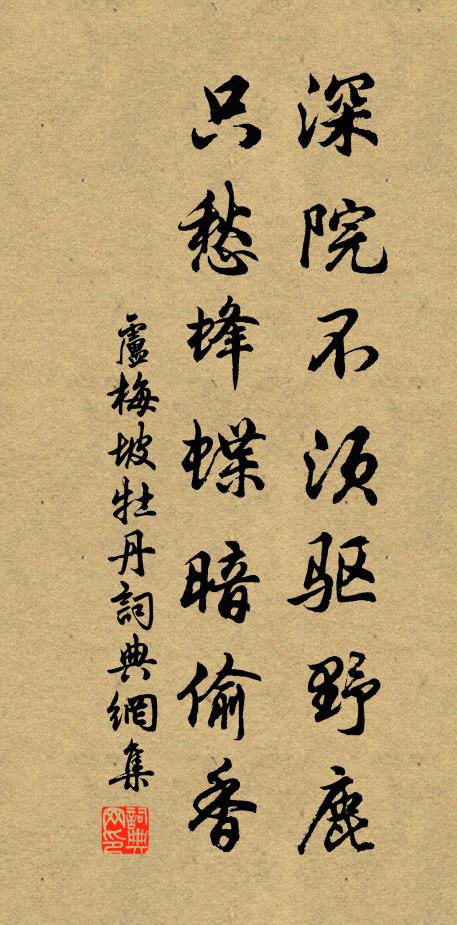 深院不须驱野鹿
只愁蜂蝶暗偷香
盧梅坡牡丹詞典網集
詞典网印